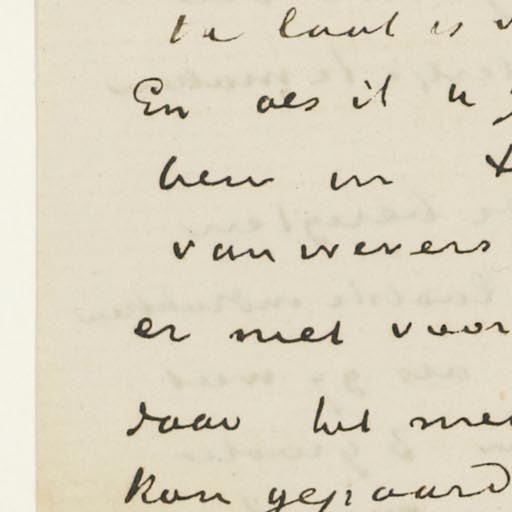 te laat is
En als ik u
ben in
van wevers
er niet voor
daar het me
kan gepaard